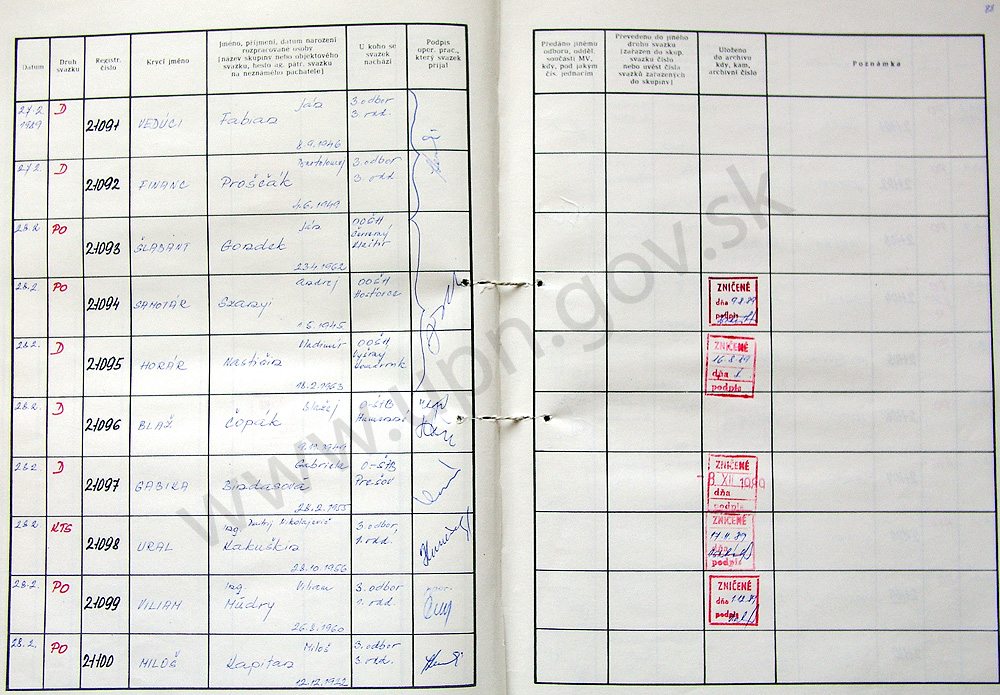 88
Datum
Druh
svazku
Registr.
číslo
Krycí jméno
Jméno, příjmení, datum narození
rozpracované osoby
[název skupiny nebo objektového
svazku, heslo ag. pátr. svazku
na neznámého pachatele]
U koho se
svazek
nachází
Podpis
oper. prac.,
který svazek
přijal
Předáno jinému
odboru, odděl
součásti MV,
kdy, pod jakým
čís. jednacím
Převedeno do jiného
druhu svazku
[zařazen do skup.
svazku číslo
nebo uvést čísla
svazků zařazených
do skupiny]
Uloženo
do archivu
kdy, kam,
archivní číslo
Poznámka
27.2.
1989
D
21091
VEDÚCI
Ján
Fabian
8.9.1946
3. odbor
3. odd.
27.2.
D
21092
FINANC
Proščák
4.6.1949
3. odbor
3. odd.
28.2.
PO
21093
Ján
Gondek
23.4.1962
OOŠA
28.2.
PO
21094
SAMOTÁR
Andrej
Szanyi
1.6.1945
OOŠA
ZNIČENÉ
dňa 9.8.89
podpis
28.2.
D
21095
HORÁR
Vladimír
18.2.1963
OOŠA
ZNIČENÉ
16.8.89
dňa
podpis
28.2.
D
21096
BLAŽ
Blažej
Čopák
O-ŠTB
28.2.
D
21097
GABIKA
Gabriela
28.2.1955
O-ŠTB
Prešov
ZNIČENÉ
8. XII. 1989
dňa
podpis
28.2.
KTS
21098
URAL
Ing.
Kakuškin
28.10.1956
3. odbor,
1. odd.
ZNIČENÉ
dňa
podpis
28.2.
PO
21099
VILIAM
Ing. Viliam
Múdry
26.8.1960
3. odbor
1. odd.
ZNIČENÉ
dňa
podpis
28.2.
PO
21100
MILOŠ
Miloš
Kapitan
12.12.1932
3. odbor
3. odd.
www.upn.gov.sk